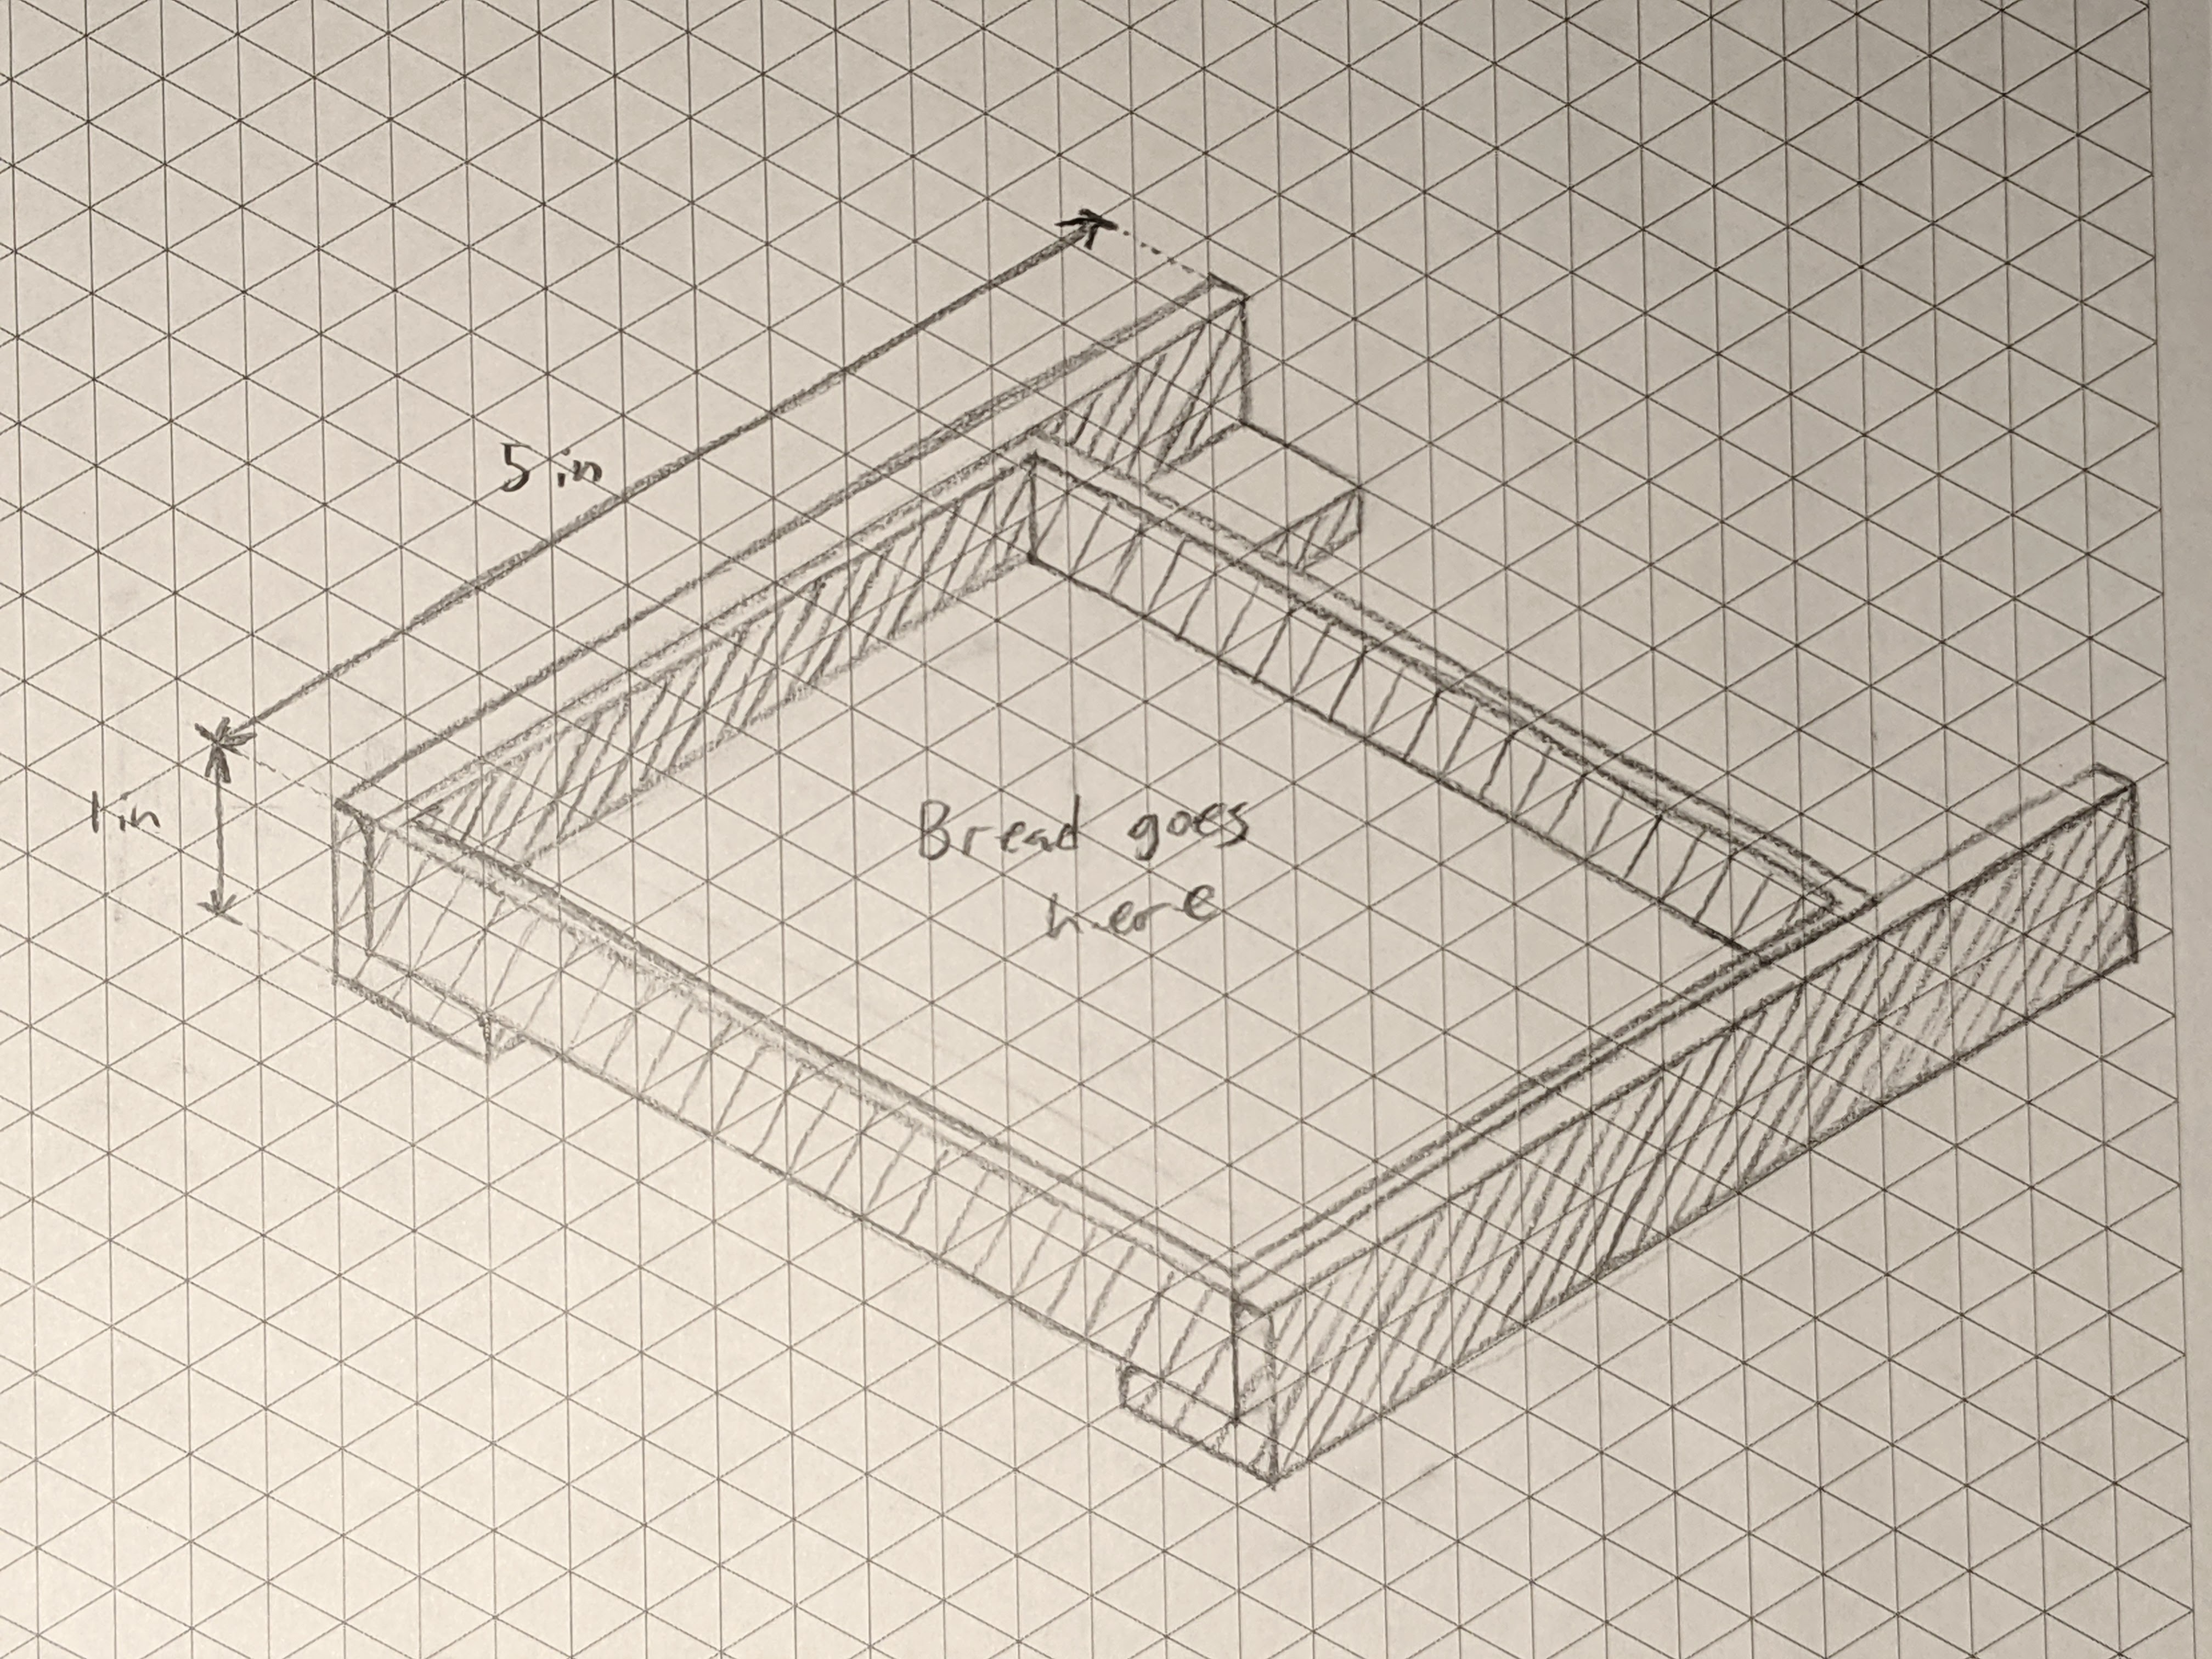 5 in
1 in
Bread goes
here